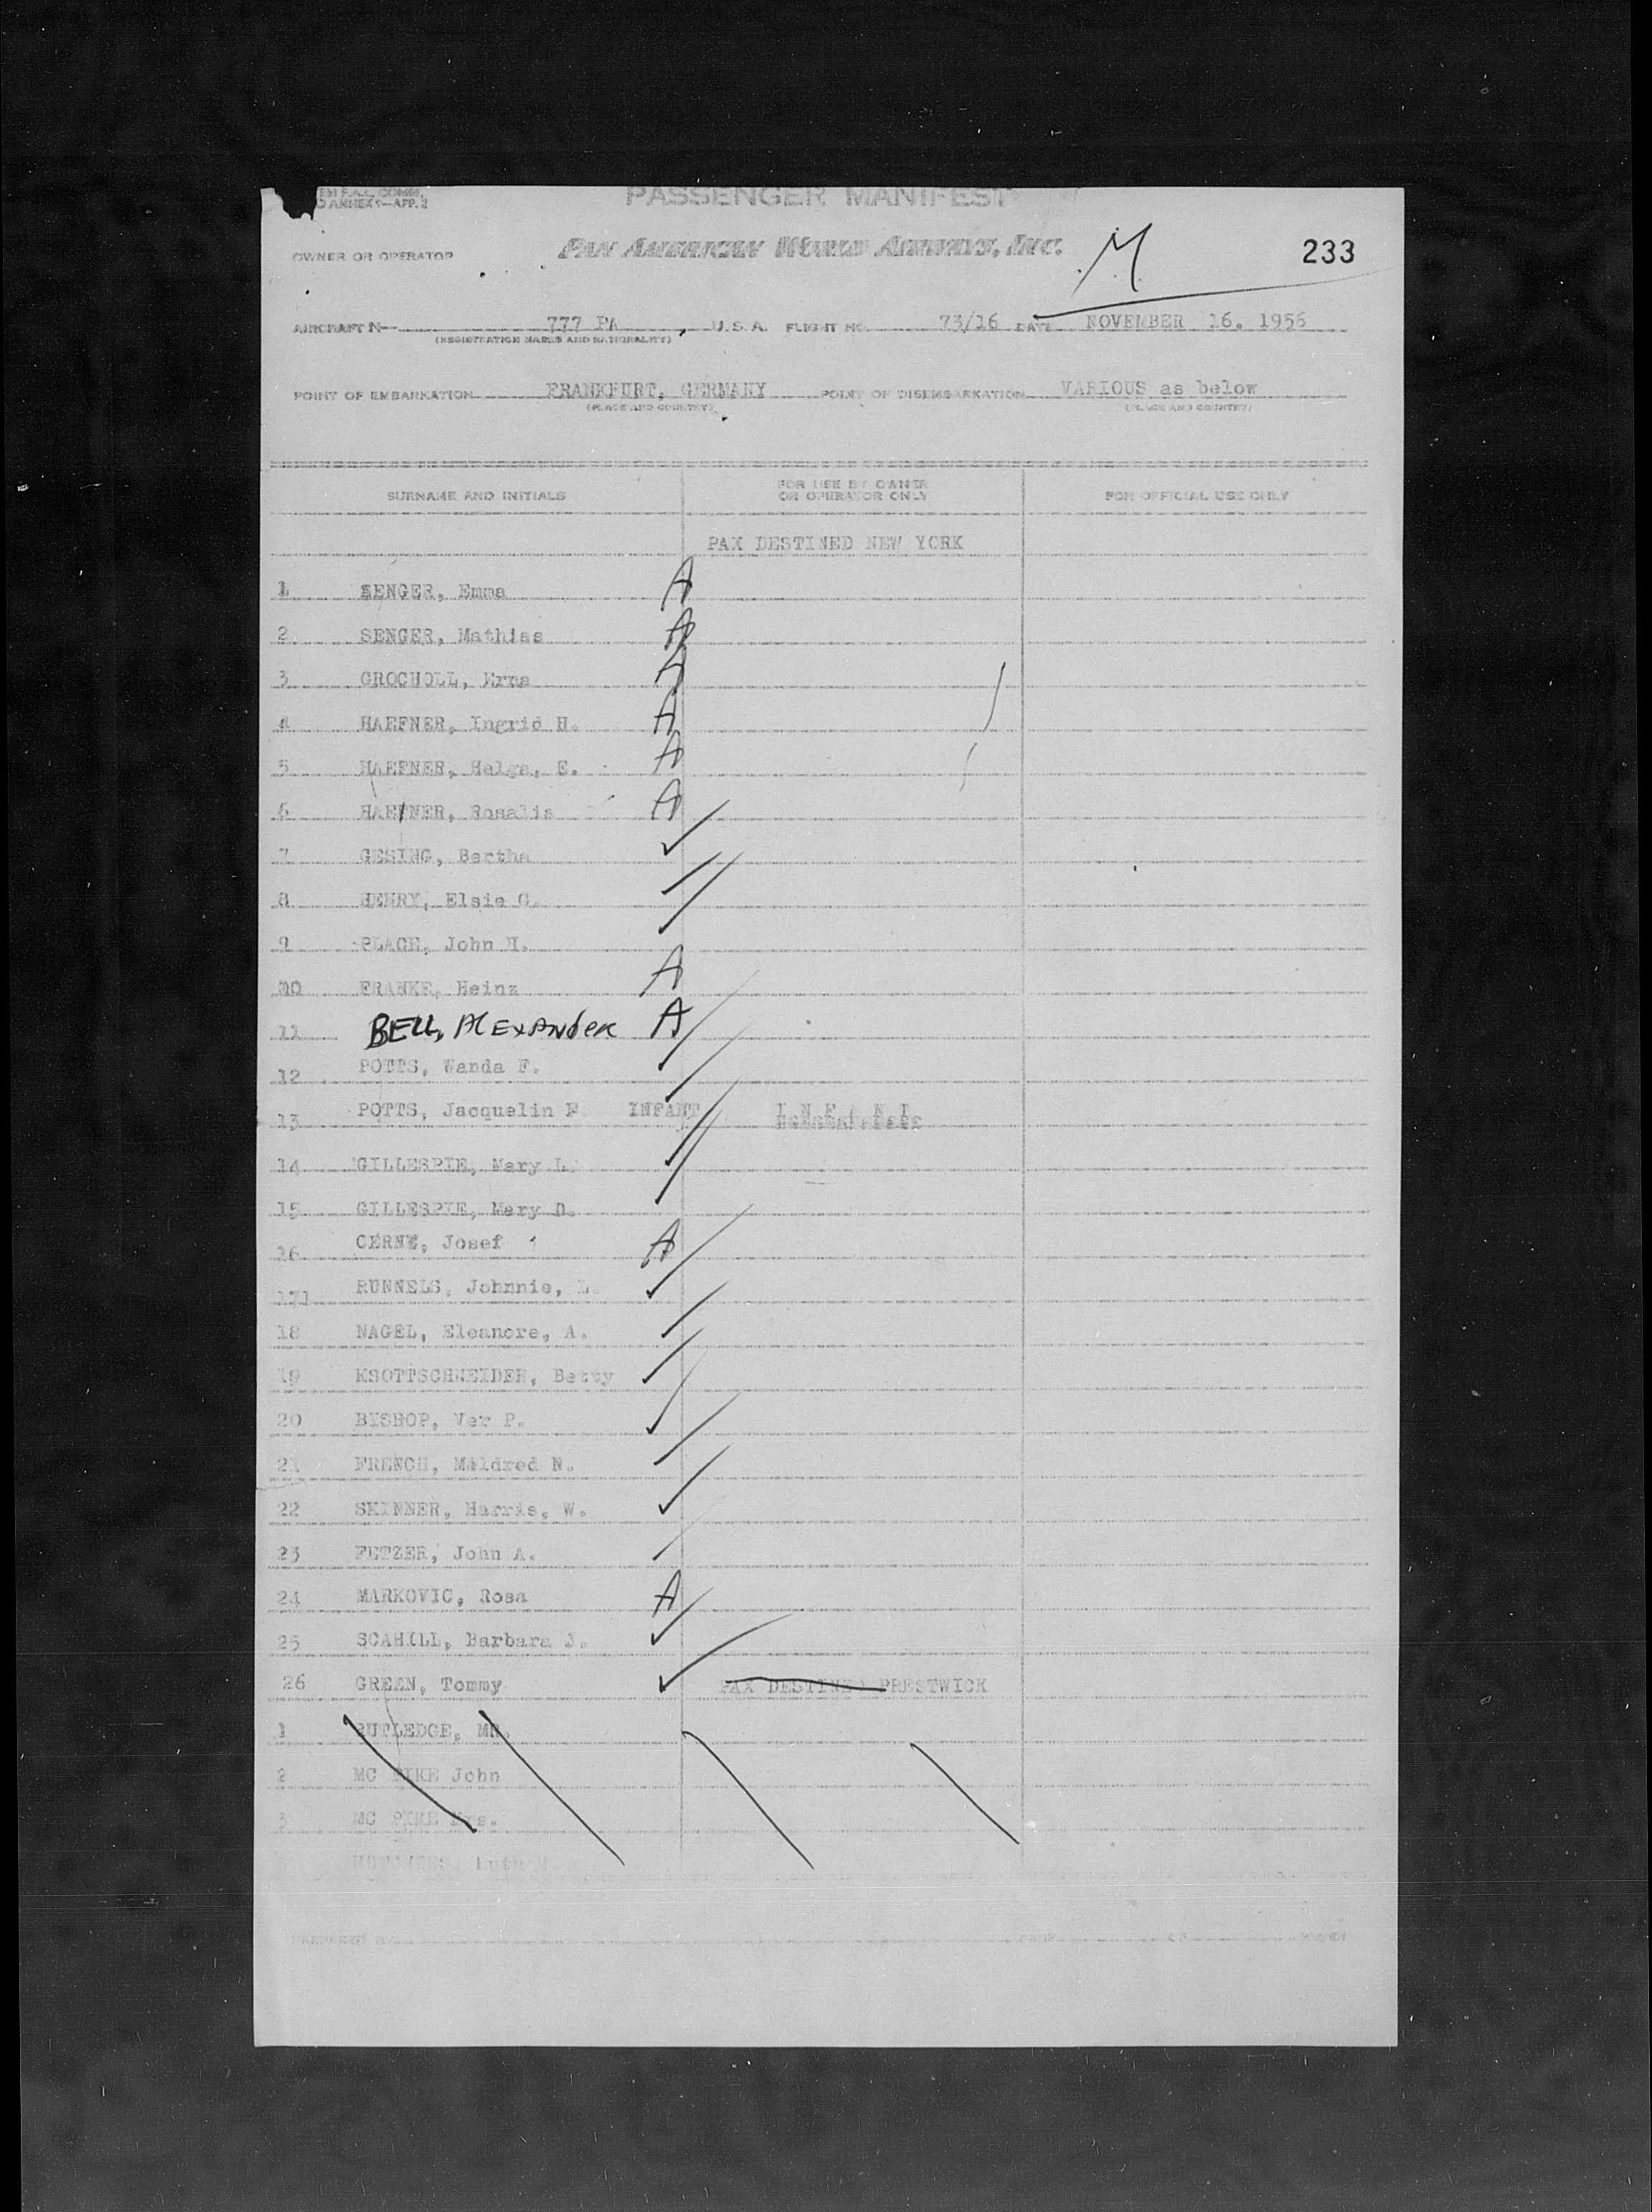 PASSENGER MANIFEST
ANNEX 9—APP. 2
OWNER OR OPERATOR PAN AMERICAN WORLD AIRWAYS, INC. M 233
AIRCRAFT N 777 PA , U.S.A. FLIGHT NO. 73/16 DATE NOVEMBER 16. 1956
(REGISTRATION MARKS AND NATIONALITY)
POINT OF EMBARKATION FRANKFURT, GERMANY POINT OF DISEMBARKATION VARIOUS as below
(PLACE AND COUNTRY) (PLACE AND COUNTRY)
SURNAME AND INITIALS FOR USE BY OWNER OR OPERATOR ONLY FOR OFFICIAL USE ONLY
PAX DESTINED NEW YORK
1 SENGER, Emma A
2 SENGER, Mathias A
3 GROCHOLL, Erna A
4 HAEFNER, Ingrid H. A
5 HAEFNER, Helga, E. A
6 HAEFNER, Rosalia A
7 GESING, Bertha
8 HENRY, Elsie G.
9 PLACH, John H.
10 FRANKE, Heinz A
11 BELL, AlExANdeR A
12 POTTS, Wanda F.
13 POTTS, Jacquelin F INFANT I N F A N T
14 GILLESPIE, Mary L.
15 GILLESPIE, Mary D.
16 CERNE, Josef A
17 RUNNELS, Johnnie, L.
18 NAGEL, Eleanore, A.
19 KSOTTSCHNEIDER, Betty
20 BISHOP, Ver P.
21 FRENCH, Mildred N.
22 SKINNER, Harris, W.
23 FETZER, John A.
24 MARKOVIC, Rosa A
25 SCAHILL, Barbara J.
26 GREEN, Tommy PAX DESTINED PRESTWICK
1 RUTLEDGE, MR.
2 MC PIKE John
3 MC PIKE Mrs.
PREPARED BY